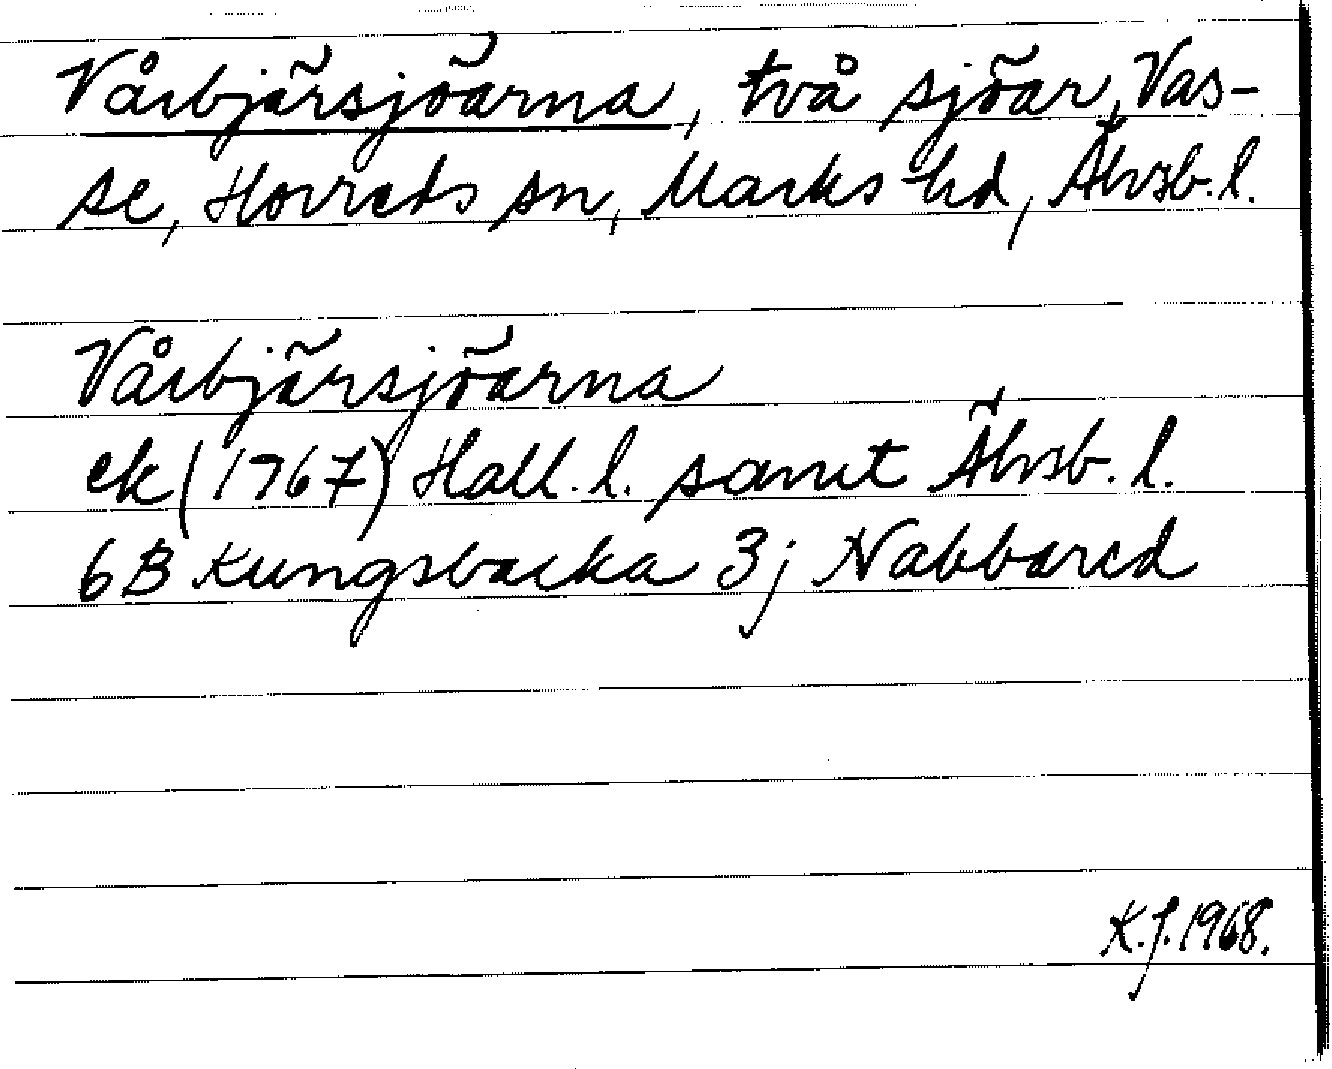 Vårbjärsjöarna, två sjöar, Vas-
se, Horreds sn, Marks hd, Älvsb. l.
Vårbjärsjöarna
ek (1967) Hall. l. samt Älvsb. l.
6B Kungsbacka 3j Nabbared
K.J. 1968.